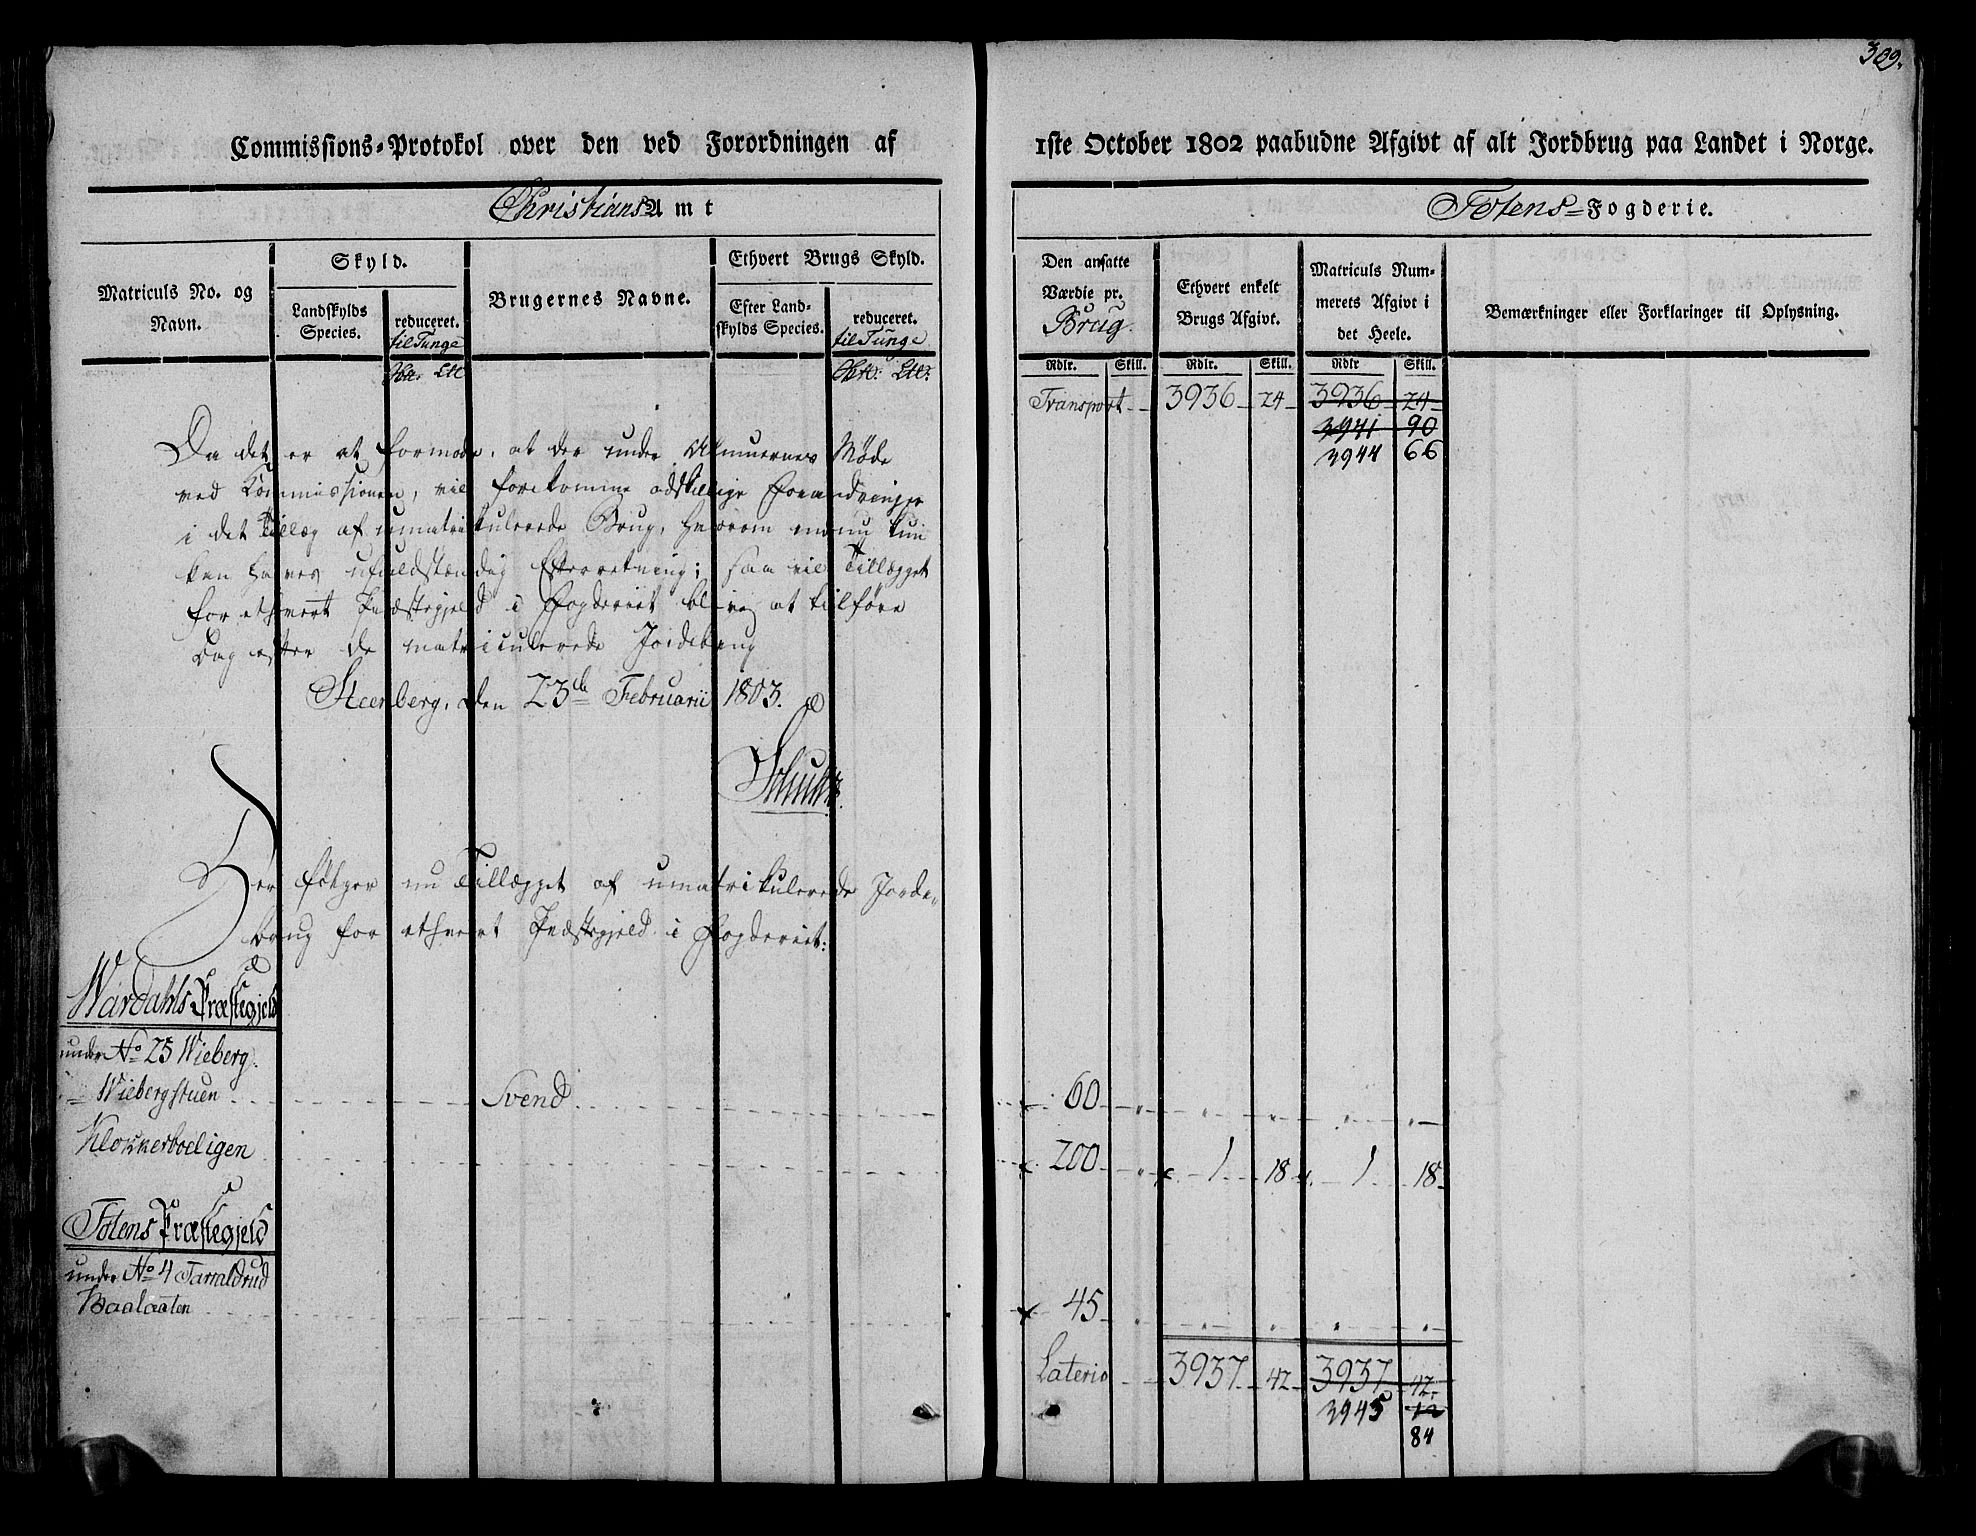 309.
Commissions-Protokol over den ved Forordningen af 1ste October 1802 paabudne Afgivt af alt Jordbrug paa Landet i Norge.
Christians Amt
Totens Fogderie.
Matriculs No. og Navn.
Skyld.
Landskylds Species.
reduceret. til Tunge
Brugernes Navne.
Ethvert Brugs Skyld.
Efter Landskylds Species.
reduceret. til Tunge
Den ansatte Værdie pr. Brug.
Ethvert enkelt Brugs Afgivt.
Matriculs Nummerets Afgivt i det Heele.
Bemærkninger eller Forklaringer til Oplysning.
Rdlr. Skill. Rdlr. Skill. Rdlr Skill.
Transport 3936 24 3936 24
3941 90
3944 66
Da det er at formode, at der under Almuernes Møde
ved Commissionen, vil forekomme adskillige Forandringer
i det Tillæg af umatrikulerede Brug, hvorom endnu kun
kan haves ufuldstændig Efterretning; saa vil Tillægget
for ethvert Præstegjeld i Fogderiet blive at tilføre
bag efter de matriculerede Jordebrug
Steenberg, den 23de Februarii 1803.
Her følger nu Tillægget af umatrikulerede Jorde-
brug for ethvert Præstegjeld i Fogderiet:
Wardahls Præstegjeld
under No 25 Wieberg.
Wiebergstuen Svend 60
Klokkerboeligen 200 1 18 1 18
Totens Præstegjeld
under No 4 Tarraldrud
45
Laterio 3937 42 3937 42
3945 12
84